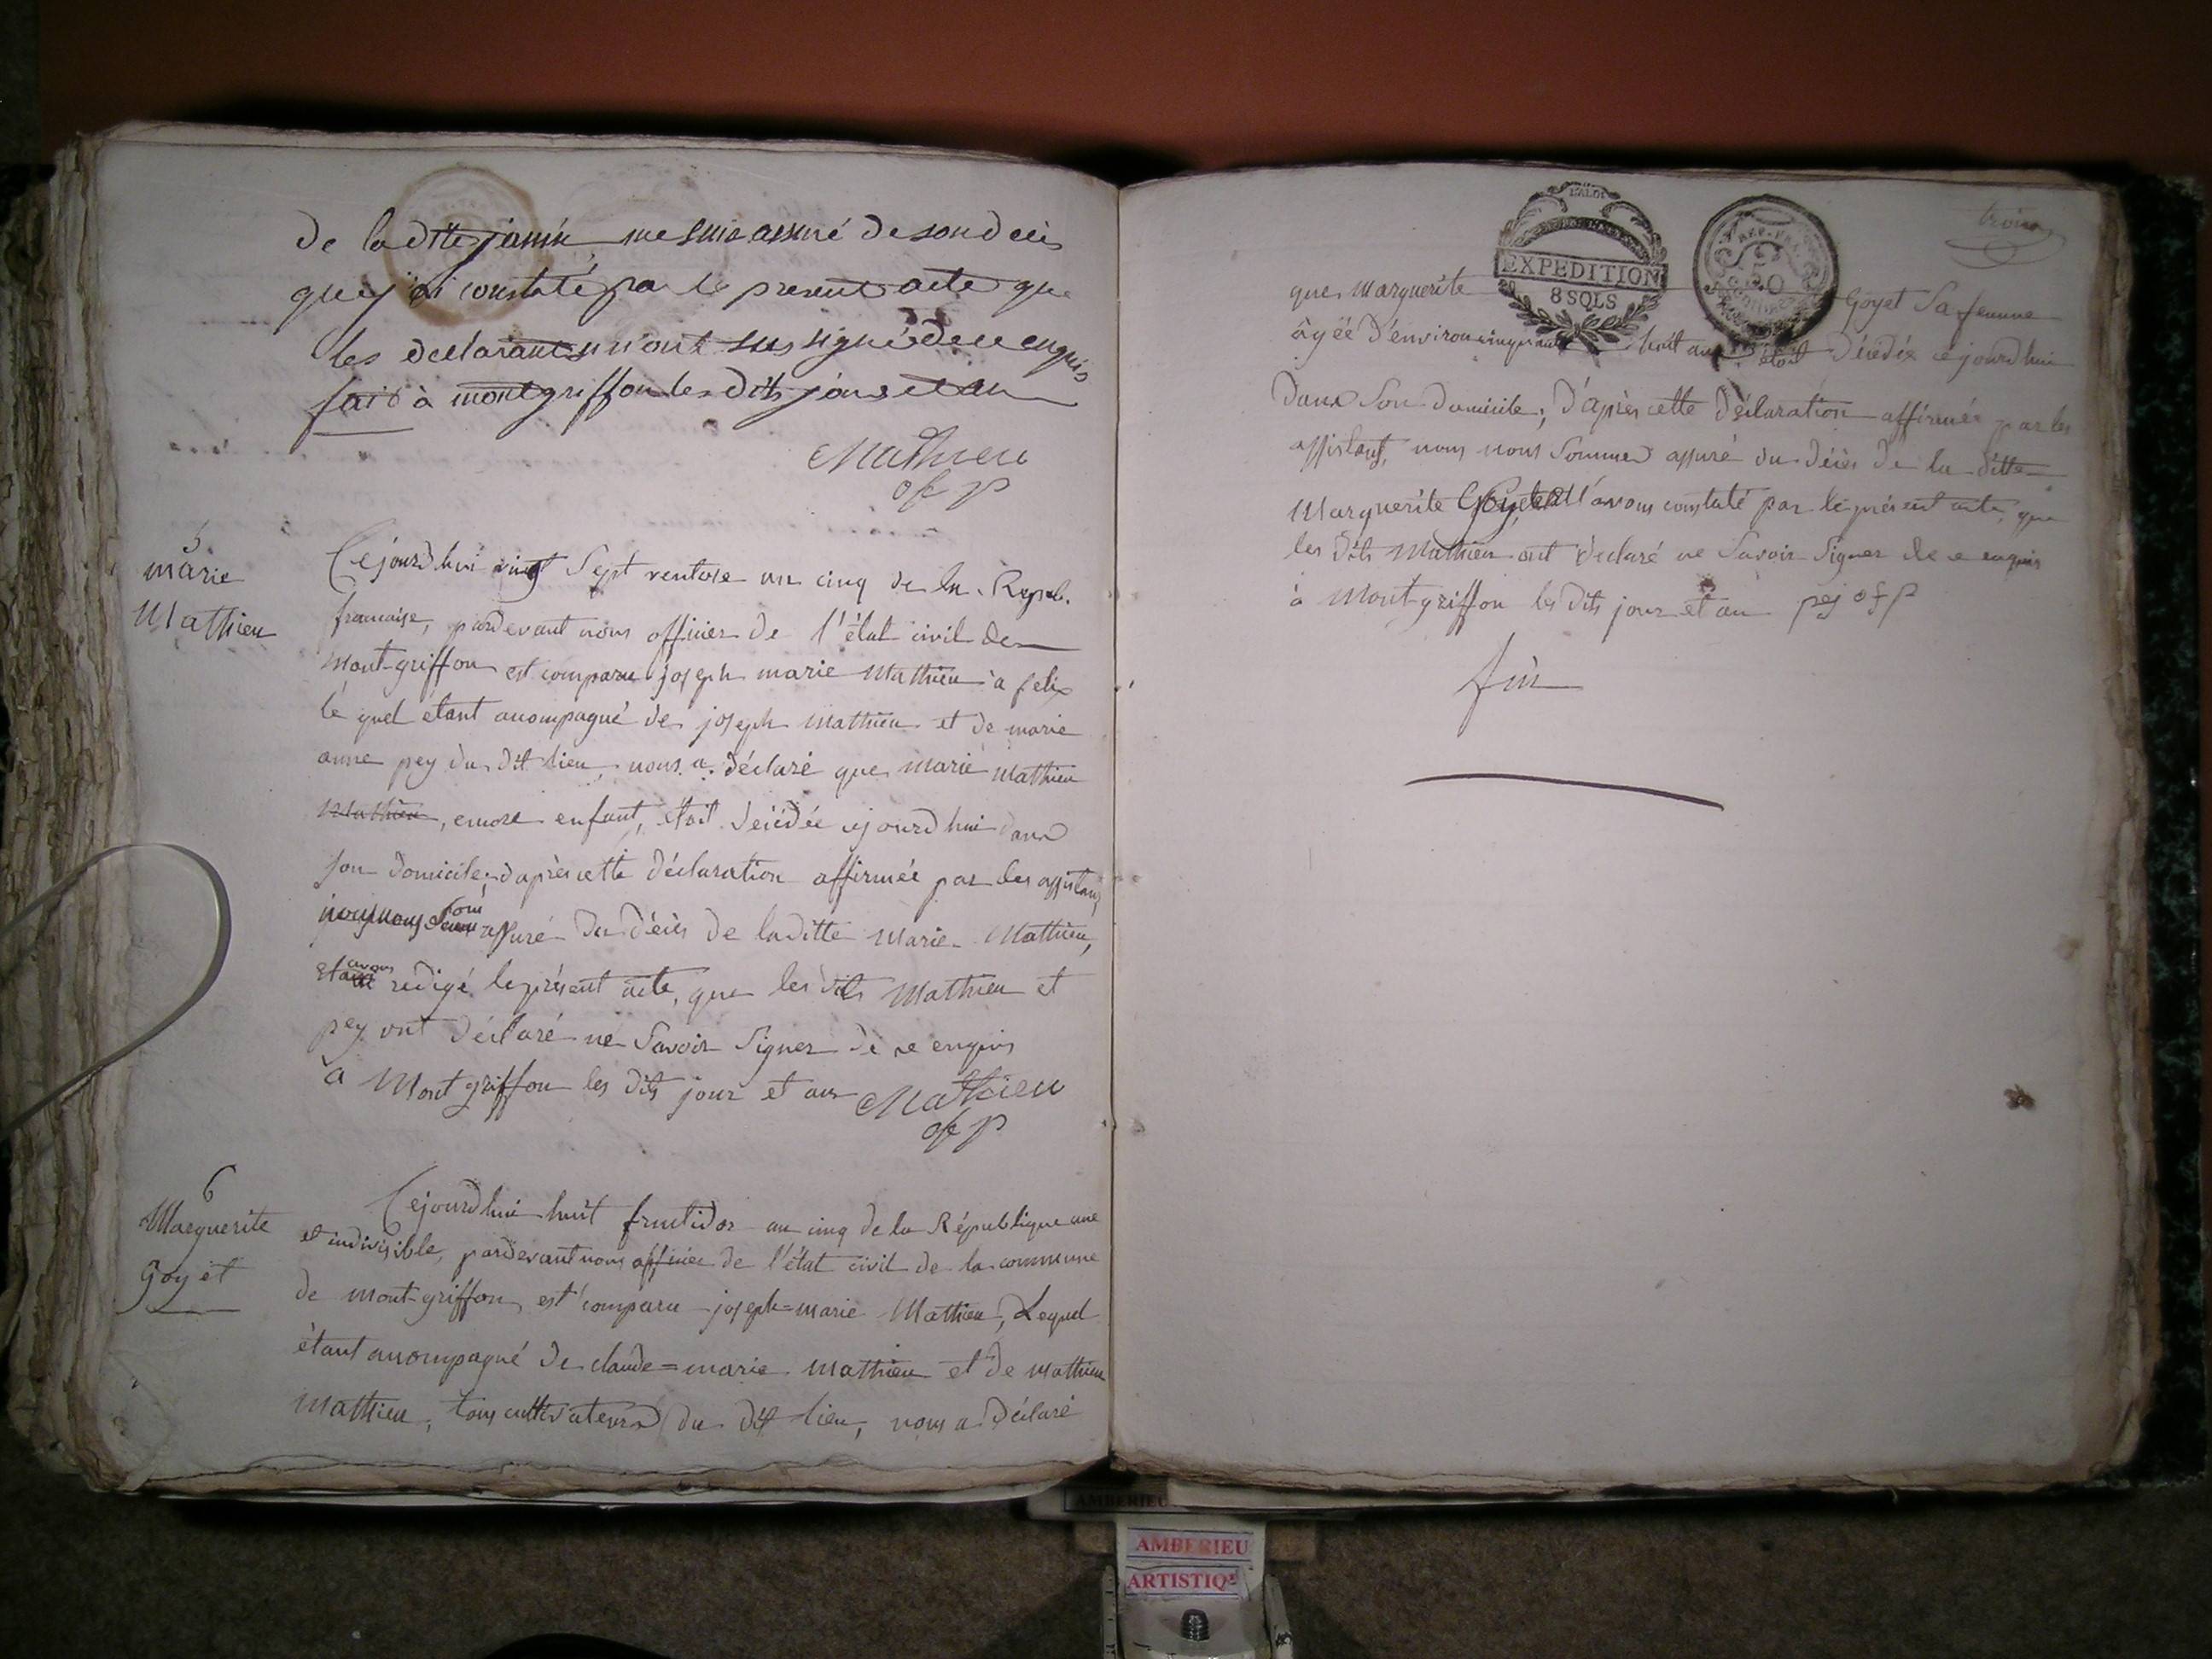 de la ditte janin me suis assuré de son deces
que j'ai constaté par le present acte que
les declarants n'ont sus signé de ce enquis
fait à montgriffon les dits jour et an
Mathieu
of p
5
marie
Mathieu
Cejourdhui vingt Sept ventose an cinq de la Repub.
francaise, pardevant nous officier de l'état civil de
Mont-griffon est comparu joseph marie Mathieu à felix
le quel étant acompagné de joseph Mathieu et de marie
anne pey du dit lieu, nous a déclaré que marie Mathieu
Mathieu, encore enfant, étoit décédée cejourdhui dans
son domicile; d'après cette déclaration affirmée par les assistans
nous nous som assuré du décès de laditte Marie Mathieu,
et avons redigé le présent acte, que les dits Mathieu et
pey ont déclaré ne Savoir Signer de ce enquis
à Montgriffon les dits jour et an Mathieu
of p
6
Marguerite
Goyet
Cejourdhui huit fructidor an cinq de la République une
et indivisible, pardevant nous officier de l'état civil de la commune
de mont-griffon, est comparu joseph=marie Mathieu, Lequel
étant acompagné de claude=marie Mathieu et de Mathieu
Mathieu, tous cultivateurs du dit lieu, nous a déclaré
trois
EXPEDITION
8 SOLS
REP. FRA.
50
que Marguerite Goyet Sa femme
âgée d'environ cinquante huit ans étoit Décédée cejourdhui
dans Son Domicile; d'après cette Déclaration affirmée par les
assistans, nous nous Sommes assuré du décès de la ditte
Marguerite Goyet et l'avons constaté par le présent acte, que
les dits Mathieu ont déclaré ne Savoir Signer de ce enquis
à Mont-griffon les dits jour et an pej of p
fin
AMBERIEU
AMBERIEU
ARTISTIQ